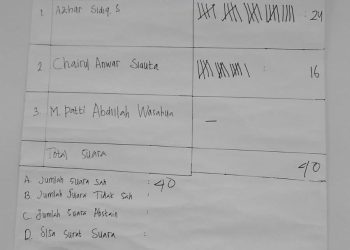 1. Azhar Sidiq S : 24
2 Chairul Anwar Siauta : 16
3. M. Patti Abdillah Wasahua —
Total Suara 40
A. Jumlah Suara Sah : 40
B. Jumlah Suara Tidak Sah :
C. Jumlah Suara Abstain :
D. Sisa Surat Suara :